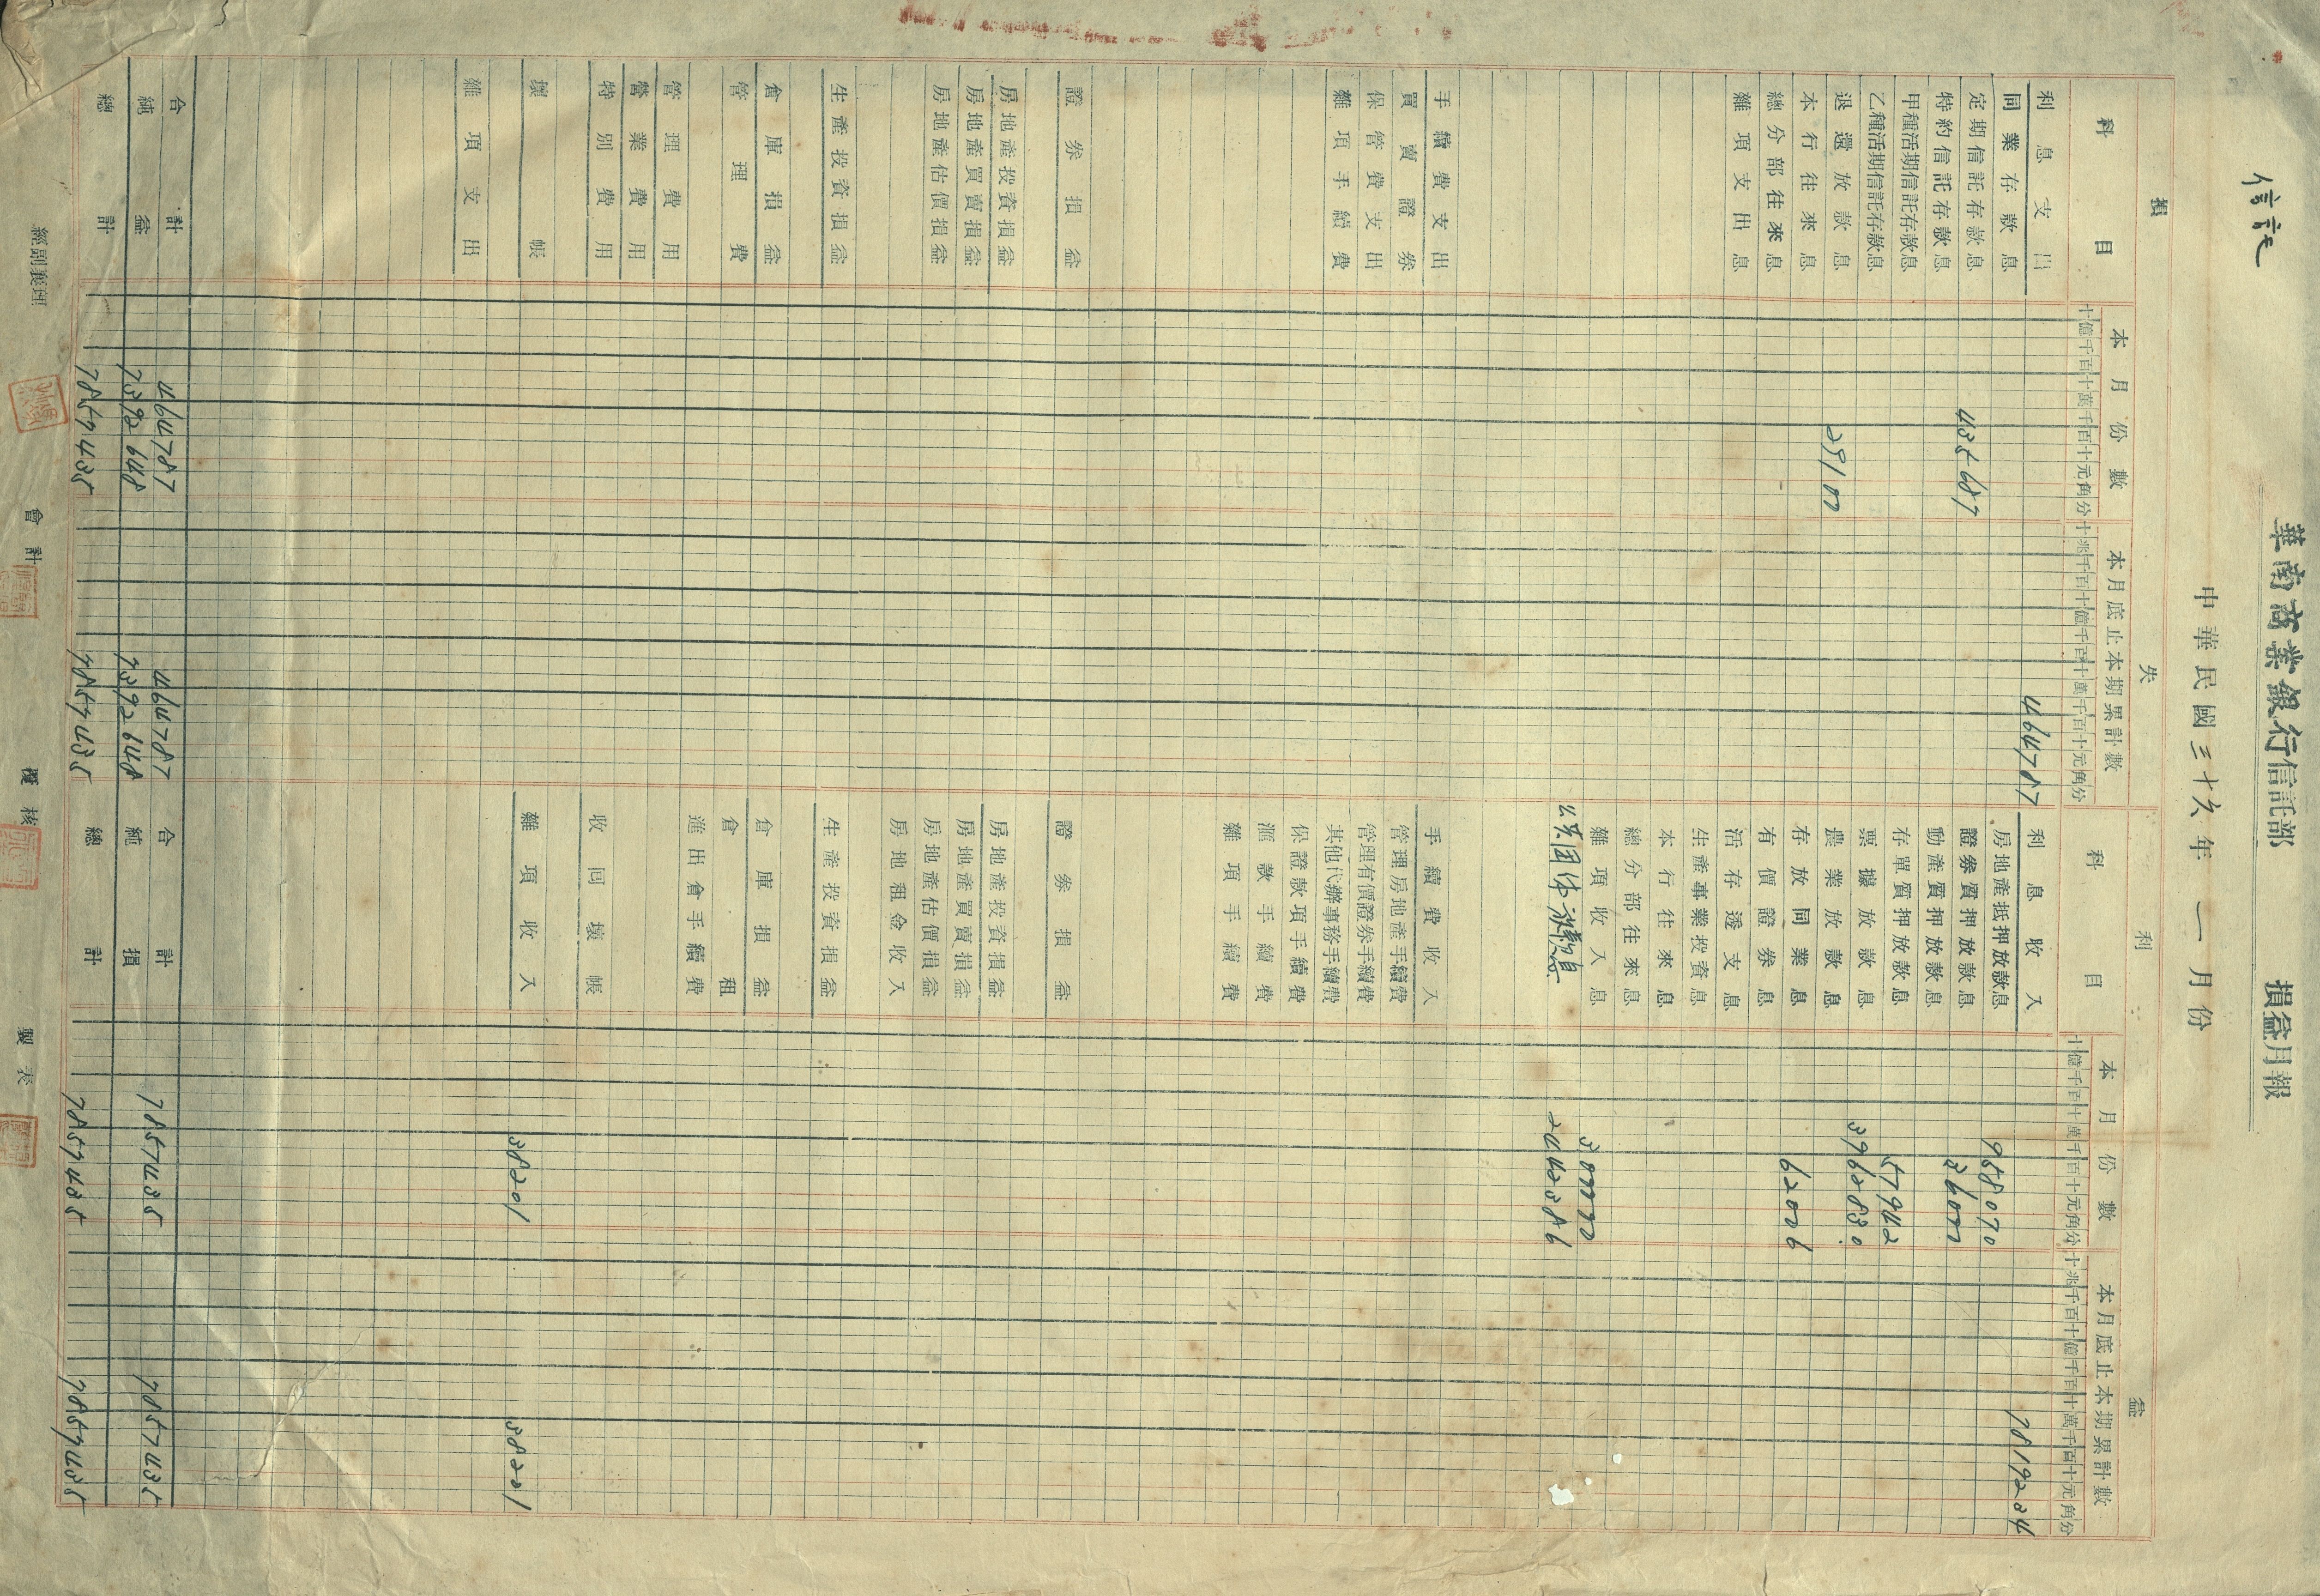 信託
華南商業銀行信託部 損益月報
中華民國三十六年一月份
損 失 利 益
科目 本月份數 本月底止本期累計數 科目 本月份數 本月底止本期累計數
十億千百十萬千百十元角分 十兆千百十億千百十萬千百十元角分 十億千百十萬千百十元角分 十兆千百十億千百十萬千百十元角分
利息支出 464787 利息收入 7819234
同業存款息 房地產抵押放款息 958070
定期信託存款息 435687 證券質押放款息 36000
特約信託存款息 動產質押放款息
甲種活期信託存款息 存單質押放款息 57942
乙種活期信託存款息 票據放款息 3962830
退還放款息 29100 農業放款息
本行往來息 存放同業息 62006
總分部往來息 有價證券息
雜項支出息 活存透支息
生產事業投資息
本行往來息
總分部往來息
雜項收入息 300000
公共团体放款息 2442386
手續費支出 手續費收入
買賣證券 管理房地產手續費
保管費支出 管理有價證券手續費
雜項手續費 其他代辦事務手續費
保證款項手續費
滙款手續費
雜項手續費
證券損益 證券損益
房地產投資損益 房地產投資損益
房地產買賣損益 房地產買賣損益
房地產估價損益 房地產估價損益
房地租金收入
生產投資損益 生產投資損益
倉庫損益 倉庫損益
管理費 倉租
進出倉手續費
管理費用
營業費用
特別費用 收回壞帳
壞帳 雜項收入 38201 38201
雜項支出
合計 464787 464787 合計 7857435 7857435
純益 7392648 7392648 純損
總計 7857435 7857435 總計 7857435 7857435
經副襄理 會計 覆核 製表